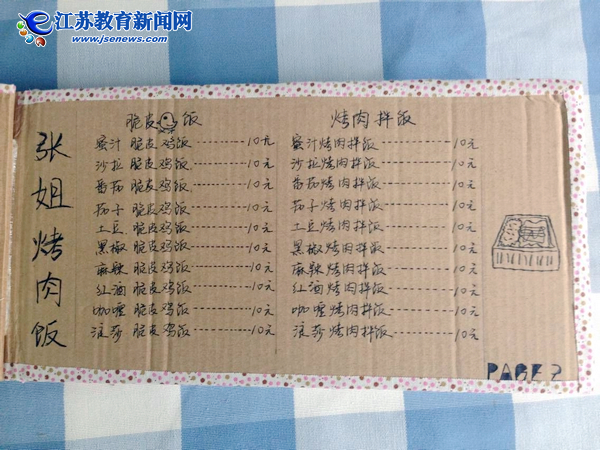 江苏教育新闻网
www.jsenews.com
张姐烤肉饭
脆皮 饭
蜜汁 脆皮鸡饭----------10元
沙拉 脆皮鸡饭----------10元
番茄 脆皮鸡饭----------10元
茄子 脆皮鸡饭----------10元
土豆 脆皮鸡饭----------10元
黑椒 脆皮鸡饭----------10元
麻辣 脆皮鸡饭----------10元
红酒 脆皮鸡饭----------10元
咖喱 脆皮鸡饭----------10元
浪莎 脆皮鸡饭----------10元
烤肉拌饭
蜜汁烤肉拌饭----------10元
沙拉烤肉拌饭----------10元
番茄烤肉拌饭----------10元
茄子烤肉拌饭----------10元
土豆烤肉拌饭----------10元
黑椒烤肉拌饭----------10元
麻辣烤肉拌饭----------10元
红酒烤肉拌饭----------10元
咖喱烤肉拌饭----------10元
浪莎烤肉拌饭----------10元
PAGE 2